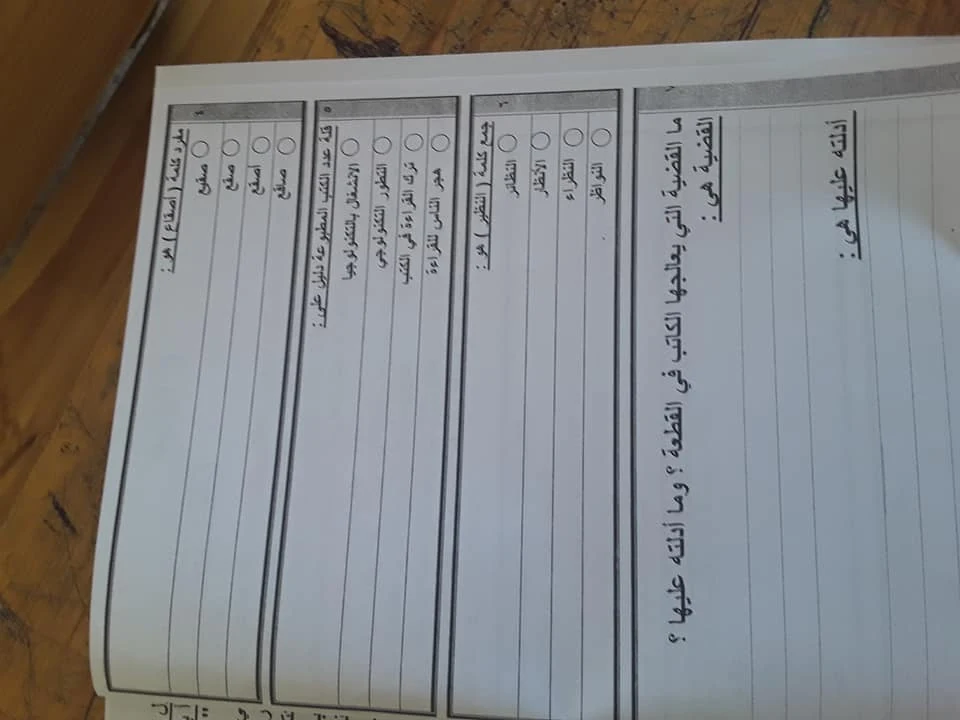 ٤
مفرد كلمة ( أصقاع ) هو :
صقيع
صقع
أصقع
صاقع
٥
قلة عدد الكتب المطبوعة دليل على :
الانشغال بالتكنولوجيا
التطور التكنولوجي
ترك القراءة في الكتب
هجر الناس للقراءة
٦
جمع كلمة ( النظير ) هو :
النظائر
الأنظار
النظراء
النواظر
ما القضية التي يعالجها الكاتب في القطعة ؟ وما أدلته عليها ؟
القضية هي :
أدلته عليها هي :